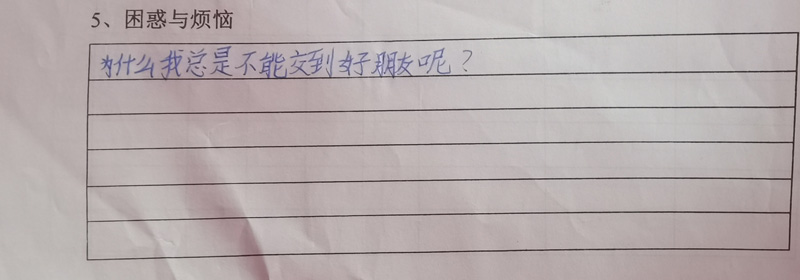 5、困惑与烦恼
为什么我总是不能交到好朋友呢？